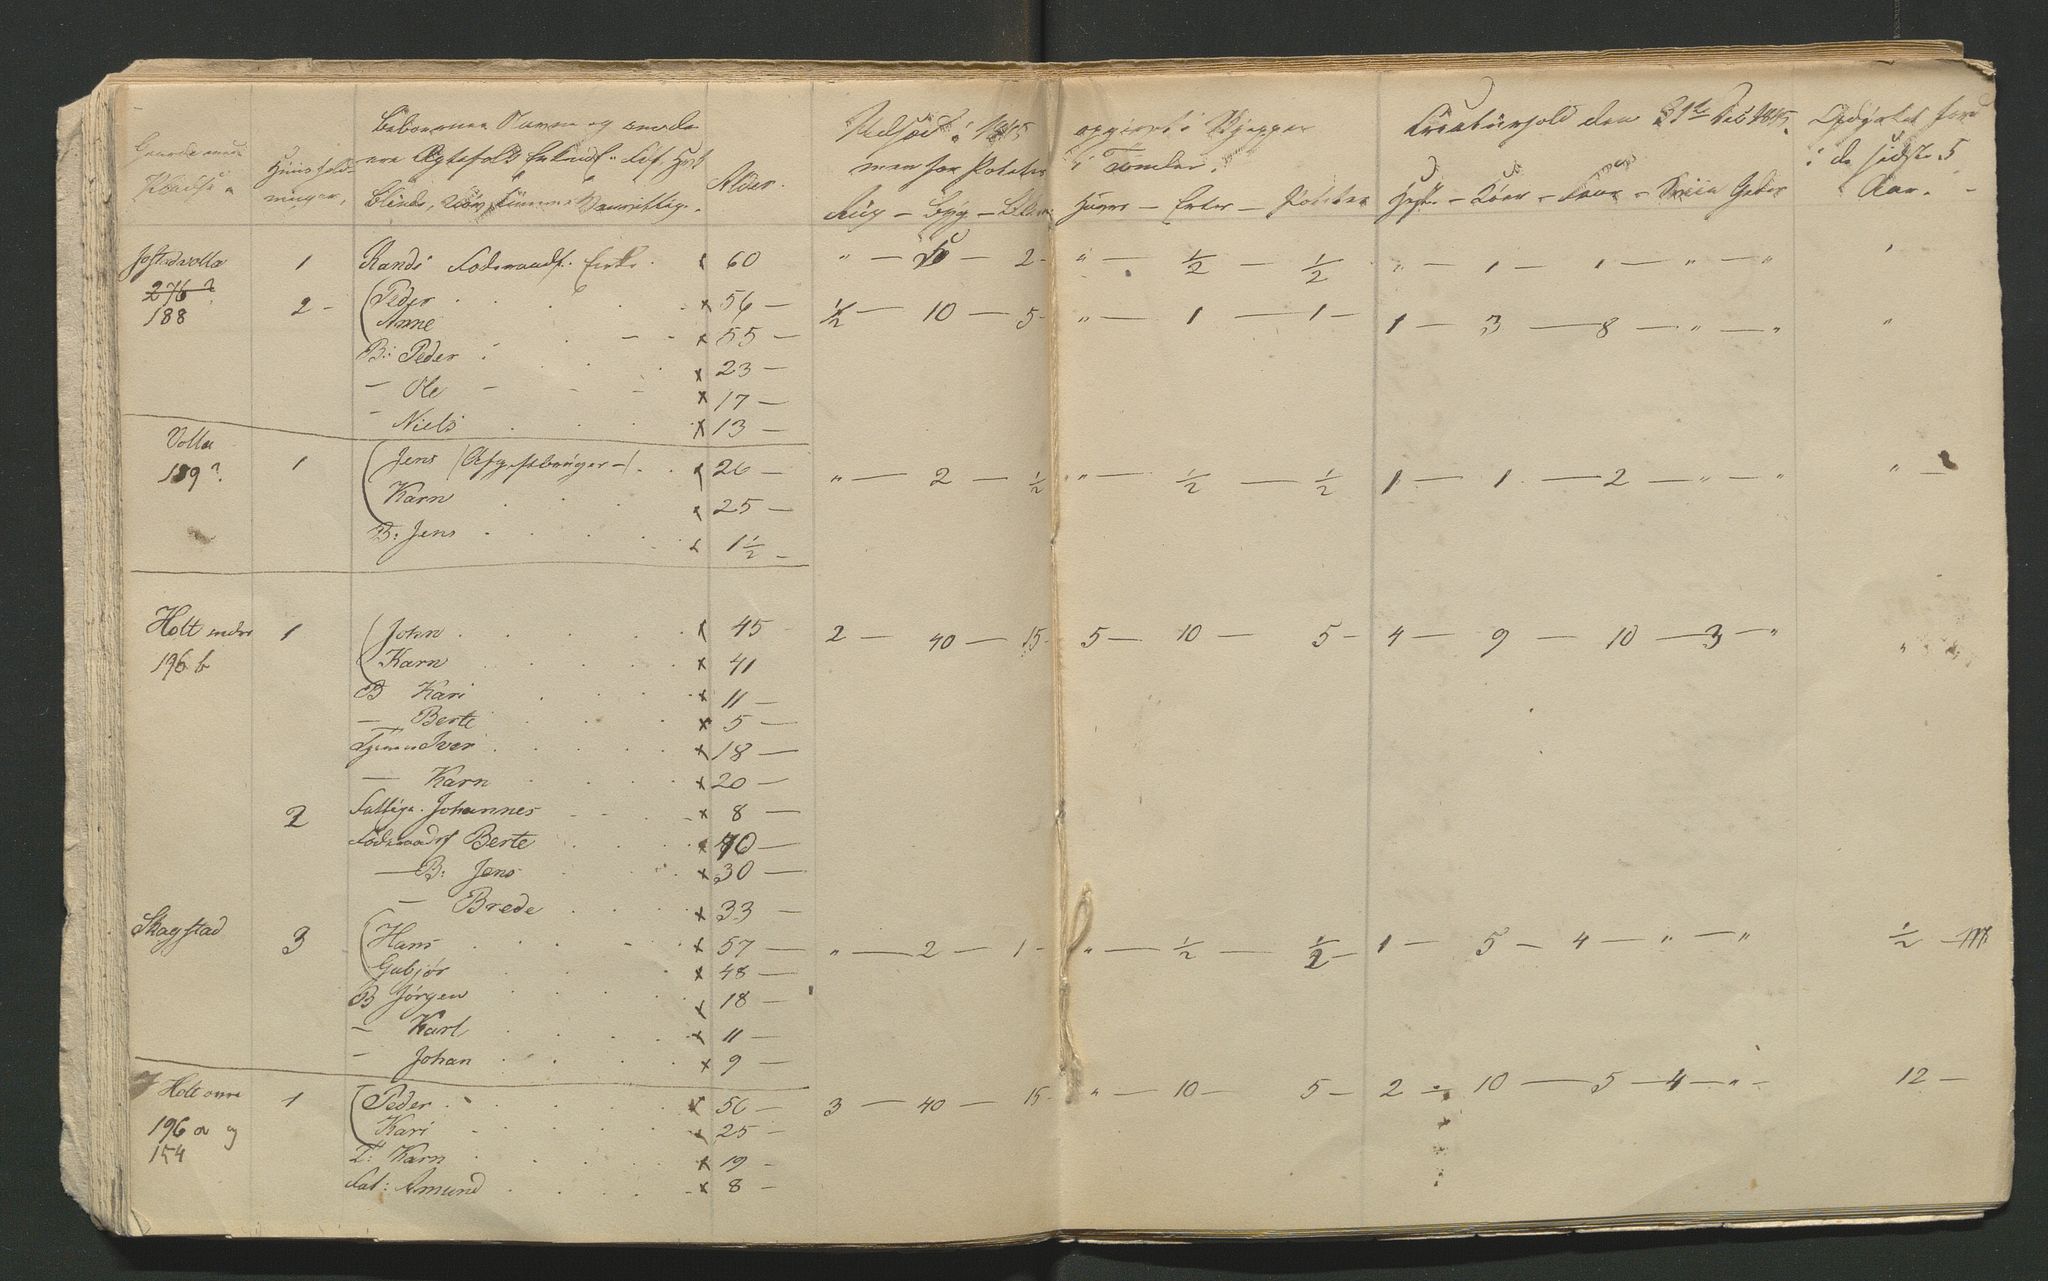 Beboernes Navne og
Alder.
Udsæd i 1845
men for Poteter
Rüg — Byg —
opgivet i Skjepper
i Tønder.
Havre — Erter — Poteter
Creatürhold den 31te Deb 1845.
Heste — Køer — Faar — Sviin Geder
Opdyrket Jord
i de sidste 5
Aar. —
1 Randi Enke. x 60 " — 5 — 2 — " — 1/2 — 1/2 " — 1 — 1 — " — " "
276?
188
2 — Peder x 56 — 1/2 — 10 — 5 — " — 1 — 1 — 1 — 3 — 8 — " — " "
Anne x 55 —
B: Peder x 23 —
— Ole x 17 —
— Niels x 13 —
Volla
189?
1 Jens x 26 — " — 2 — 1/2 " — 1/2 — 1/2 1 — 1 — 2 — " — " " —
Karn x 25 —
B: Jens x 1 1/2 —
Holt nedre 1 John x 45 2 — 40 — 15 — 5 — 10 — 5 — 4 — 9 — 10 — 3 — " "
196 b
Karn x 41
B Kari x 11 —
— Berte x 5 —
Tjener Iver x 18 —
— Karn x 20 —
2 Fattige. Johannes x 8 —
Berte x 70 —
— B: Jens x 30 —
— Brede x 33 —
Skagstad 3 Hans x 57 — " — 2 — 1 — " — 1/2 — 1/2 — 1 — 5 — 4 — " — " 1/2 —
Gubjør x 48 —
B Jørgen x 18 —
— Karl x 11 —
— Johan x 9 —
Holt øvre 1 Peder x 56 — 3 — 40 — 15 — " — 10 — 5 — 2 — 10 — 5 — 4 — " — 12 —
196 a og
154
Kari x 25 —
T: Karn x 19 —
Fat: Amund x 8 —